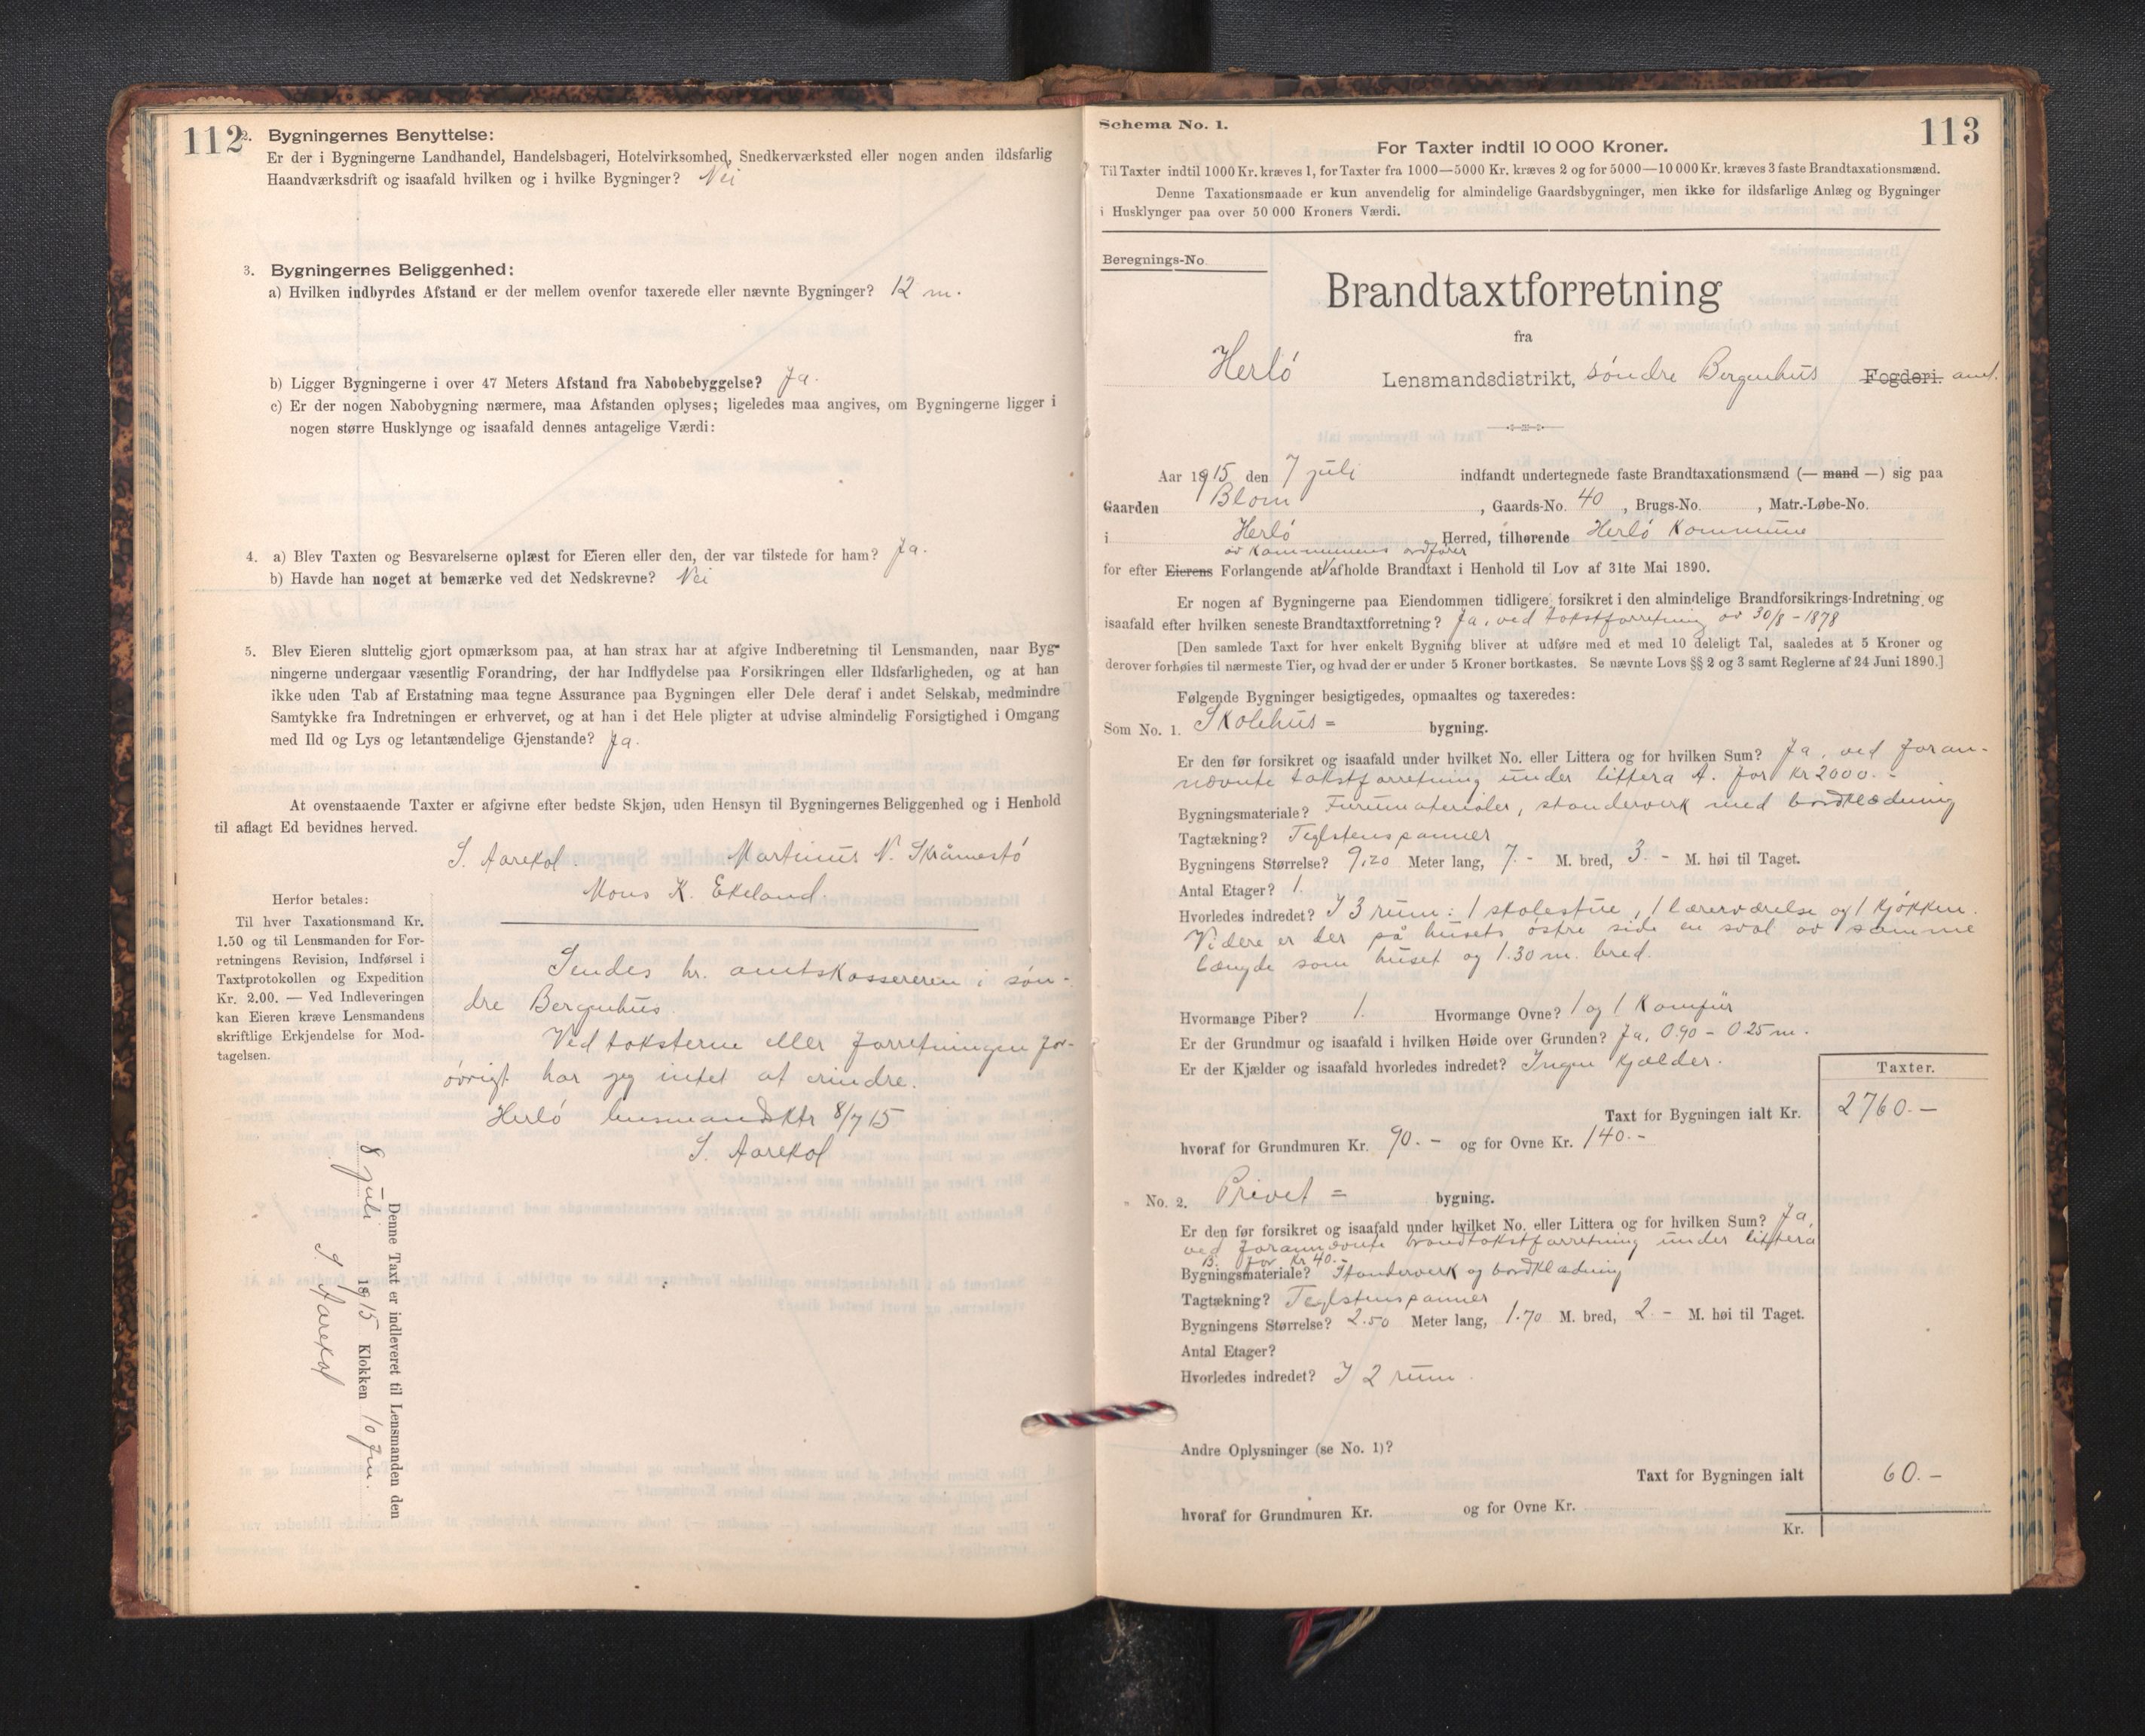 112
2. Bygningernes Benyttelse:
Er der i Bygningerne Landhandel, Handelsbageri, Hotelvirksomhed, Snedkerværksted eller nogen anden ildsfarlig
Haandværksdrift og isaafald hvilken og i hvilke Bygninger? Nei
3. Bygningernes Beliggenhed:
a) Hvilken indbyrdes Afstand er der mellem ovenfor taxerede eller nævnte Bygninger? 12 m.
b) Ligger Bygningerne i over 47 Meters Afstand fra Nabobebyggelse? Ja.
c) Er der nogen Nabobygning nærmere, maa Afstanden oplyses; ligeledes maa angives, om Bygningerne ligger i
nogen større Husklynge og isaafald dennes antagelige Værdi:
4. a) Blev Taxten og Besvarelserne oplæst for Eieren eller den, der var tilstede for ham? Ja.
b) Havde han noget at bemærke ved det Nedskrevne? Nei
5. Blev Eieren sluttelig gjort opmærksom paa, at han strax har at afgive Indberetning til Lensmanden, naar Byg-
ningerne undergaar væsentlig Forandring, der har Indflydelse paa Forsikringen eller Ildsfarligheden, og at han
ikke uden Tab af Erstatning maa tegne Assurance paa Bygningen eller Dele deraf i andet Selskab, medmindre
Samtykke fra Indretningen er erhvervet, og at han i det Hele pligter at udvise almindelig Forsigtighed i Omgang
med Ild og Lys og letantændelige Gjenstande? Ja.
At ovenstaaende Taxter er afgivne efter bedste Skjøn, uden Hensyn til Bygningernes Beliggenhed og i Henhold
til aflagt Ed bevidnes herved.
S. Aarekol. Martinus N. Skråmestó
Mons K. Ekeland.
Herfor betales:
Til hver Taxationsmand Kr.
1.50 og til Lensmanden for For-
retningens Revision, Indførsel i
Taxtprotokollen og Expedition
Kr. 2.00. — Ved Indleveringen
kan Eieren kræve Lensmandens
skriftlige Erkjendelse for Mod-
tagelsen.
Sendes hr. amtskassereren i søn-
dre Bergenhus.
Ved taksterne eller forretningen for-
óvrigt har jeg intet at erindre.
Herló lensmandsktr 8/7 15
S. Aarekol
Denne Taxt er indleveret til Lensmanden den
8 juli 1915 Klokken 10 fm.
S. Aarekol
113
Schema No. 1.
For Taxter indtil 10 000 Kroner.
Til Taxter indtil 1000 Kr. kræves 1, for Taxter fra 1000—5000 Kr. kræves 2 og for 5000—10 000 Kr. kræves 3 faste Brandtaxationsmænd.
Denne Taxationsmaade er kun anvendelig for almindelige Gaardsbygninger, men ikke for ildsfarlige Anlæg og Bygninger
i Husklynger paa over 50 000 Kroners Værdi.
Beregnings-No.
Brandtaxtforretning
fra
Herló Lensmandsdistrikt, søndre Bergenhus Fogderi. amt.
Aar 1915 den 7 juli indfandt undertegnede faste Brandtaxationsmænd (— mand —) sig paa
Gaarden Blom, Gaards-No. 40, Brugs-No. , Matr.-Løbe-No.
i Herló Herred, tilhørende Herló Kommune
av Kommunens ordfører
for efter Eierens Forlangende at afholde Brandtaxt i Henhold til Lov af 31te Mai 1890.
Er nogen af Bygningerne paa Eiendommen tidligere forsikret i den almindelige Brandforsikrings-Indretning og
isaafald efter hvilken seneste Brandtaxtforretning? Ja, ved takstforretning av 30/8 - 1878
[Den samlede Taxt for hver enkelt Bygning bliver at udføre med et med 10 deleligt Tal, saaledes at 5 Kroner og
derover forhøies til nærmeste Tier, og hvad der er under 5 Kroner bortkastes. Se nævnte Lovs §§ 2 og 3 samt Reglerne af 24 Juni 1890.]
Følgende Bygninger besigtigedes, opmaaltes og taxeredes:
Som No. 1. Skolehus = bygning.
Er den før forsikret og isaafald under hvilket No. eller Littera og for hvilken Sum? Ja, ved foran-
nævnte takstforretning under littera A. for Kr 2000.-
Bygningsmateriale? Furumaterialer, standerverk med bordklædning
Tagtækning? Teglstenspanner
Bygningens Størrelse? 9,20 Meter lang, 7.- M. bred, 3.- M. høi til Taget.
Antal Etager? 1.
Hvorledes indredet? I 3 rum: 1 skolestue, 1 lærerværelse og 1 kjøkken.
Videre er der på husets östre side en sval av samme
længde som huset og 1.30 m. bred.
Hvormange Piber? 1. Hvormange Ovne? 1 og 1 Komfür
Er der Grundmur og isaafald i hvilken Høide over Grunden? Ja, 0.90 - 0.25 m.
Er der Kjælder og isaafald hvorledes indredet? Ingen kjælder.
Taxter.
Taxt for Bygningen ialt Kr. 2760.-
hvoraf for Grundmuren Kr. 90.- og for Ovne Kr. 140.-
No. 2. Privet = bygning.
Er den før forsikret og isaafald under hvilket No. eller Littera og for hvilken Sum? Ja,
ved forannævnte brandtakstforretning under littera
B. for Kr 40.-
Bygningsmateriale? Standerverk og bordklædning
Tagtækning? Teglstenspanner
Bygningens Størrelse? 2.50 Meter lang, 1.70 M. bred, 2.- M. høi til Taget.
Antal Etager?
Hvorledes indredet? I 2 rum.
Andre Oplysninger (se No. 1)?
Taxt for Bygningen ialt 60.-
hvoraf for Grundmuren Kr. og for Ovne Kr.
Kr.